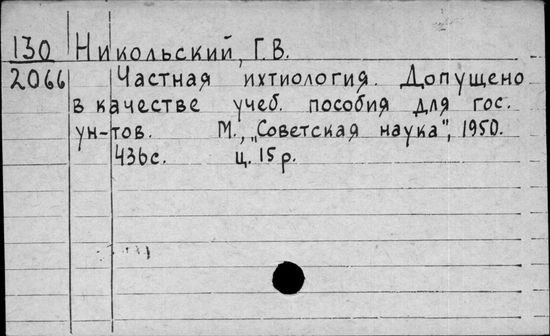 130 Никольский, Г.В.
2066 Частная ихтиология. Допущено
в качестве учеб. пособия для гос.
ун-тов. М., "Советская наука", 1950.
436с. ц. 15р.